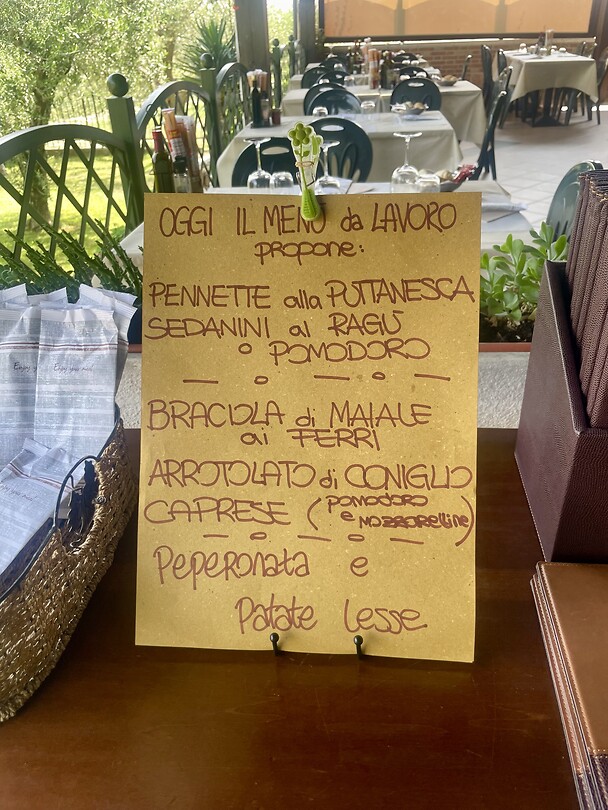 OGGI IL MENÙ da LAVORO
propone:
PENNETTE alla PUTTANESCA
SEDANINI al RAGÙ
o POMODORO
BRACIOLA di MAIALE
ai FERRI
ARROTOLATO di CONIGLIO
CAPRESE (POMODORO
e MOZZARELLINE)
Peperonata e
Patate lesse
Enjoy your meal